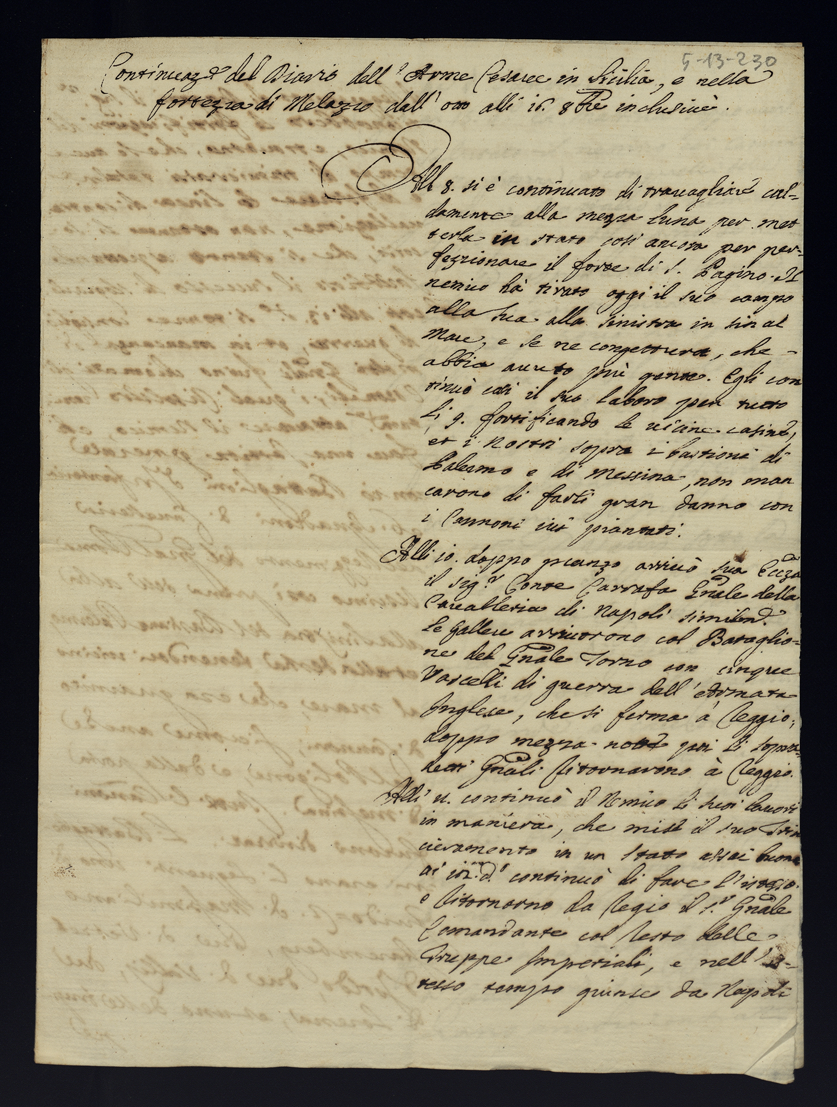 5-13-230
Continuaz.e del Diario dell'Arme Cesaree in Sicilia, e nella
fortezza di Melazzo dall' otto alli 16. 8bre inclusivè.
Alli 8. si è continuato di travagliare cal-
damente alla mezza luna per met
terla in stato così ancora per per-
fezzionare il forte di S. Pagino. Il
nemico hà tirato oggi il suo campo
alla sua alla sinistra in sin al
Mare, e se ne congettura, che
abbia avuto più gente. Egli con
tinuò così il suo lavoro per tutto
li 9. fortificando le vicine casine,
et i Nostri sopra i bastioni di
Palermo e di Messina, non man
carono di farli gran danno con
i Cannoni ivi piantati.
Alli 10. doppo pranzo arrivò sua Ecc.za
il sig.r Conte Carrafa Gnãle della
Cavalleria di Napoli similm.e
le galere arrivorono col Bataglio-
ne del Gnãle Torno con cinque
Vascelli di guerra dell'Armata
Inglese, che si ferma à Reggio;
doppo mezza notte poi li sopra
detti Gnãli ritornarono à Reggio.
Alli 11. continuò il Nemico li suoi lavori
in maniera, che mise il suo Trin
cieramento in un stato assai buono
ai 12. d.o continuò di fare l'istesso
e ritornorno da Regio il S.r Gnãle
Comandante col resto delle
Truppe Imperiali, e nell' is-
tesso tempo giunse da Napoli